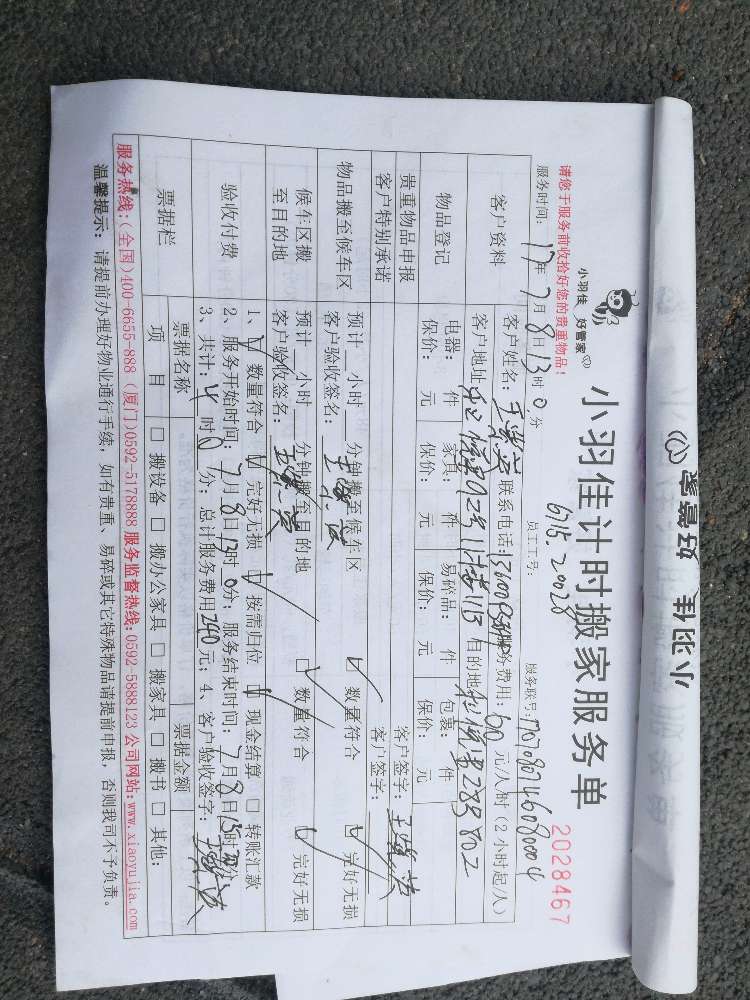 小羽佳 好管家
小羽佳计时搬家服务单
2028467
请您于服务前收拾好您的贵重物品!
员工工号: 6715. 20028
服务时间: 17年7月8日13时0分
服务联号:
客户资料
客户姓名:
联系电话:
服务费用: 60 元/人/时(2小时起/人)
客户地址
目的地
物品登记
电器: 件 家具: 件 易碎品: 件 包裹: 件
保价: 元 保价: 元 保价: 元 保价: 元
贵重物品申报
客户签字:
客户特别承诺
客户签字:
物品搬至候车区
预计 小时 分钟搬至候车区
客户验收签名:
数量符合 完好无损
候车区搬至目的地
预计 小时 分钟搬至目的地
客户验收签名:
数量符合 完好无损
验收付费
1、 数量符合 完好无损 按需归位 现金结算 □ 转账汇款
2、服务开始时间: 7月8日13时0分; 服务结束时间: 7月8日15时
3、共计: 4时0分; 总计服务费用240元; 4、客户验收签字:
票据栏
票据名称 票据金额
项 目 □ 搬设备 □ 搬办公家具 □ 搬家具 □ 搬书 □ 其他:
服务热线:(全国)400-6655-888 (厦门)0592-5178888 服务监督热线:0592-5888123 公司网站:www.xiaoyujia.com
温馨提示: 请提前办理好物业通行手续, 如有贵重、易碎或其它特殊物品请提前申报, 否则我司不予负责。
小羽佳 好管家